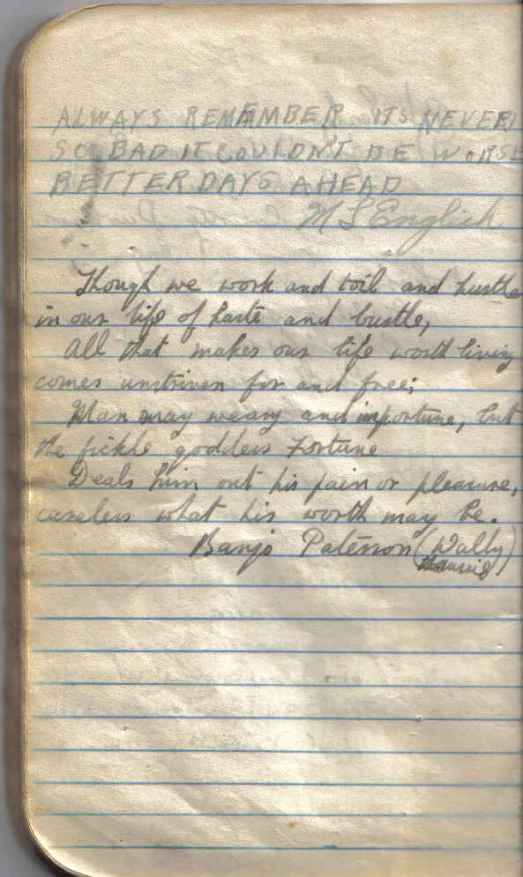 ALWAYS REMEMBER ITS NEVER
SO BAD IT COULDN'T BE WORSE
BETTER DAYS AHEAD
M S English
Though we work and toil and hustle
in our life of haste and bustle,
All that makes our life worth living
comes unstriven for and free;
Man may weary and importune, but
the fickle goddess Fortune
Deals him out his pain or pleasure,
careless what his worth may be.
Banjo Paterson (Wally)